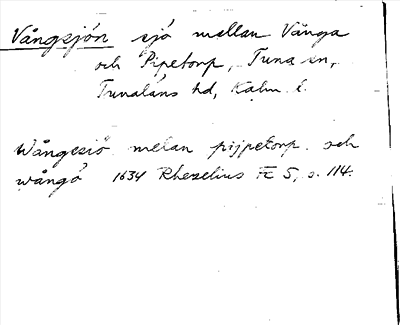 Vångsjön sjö mellan Vånga
och Pipetorp, Tuna sn,
Tunaläns hd, Kalm. l.
Wångesiö melan pijpetorp och
wångå 1634 Rhezelius Fc 5, s. 114.